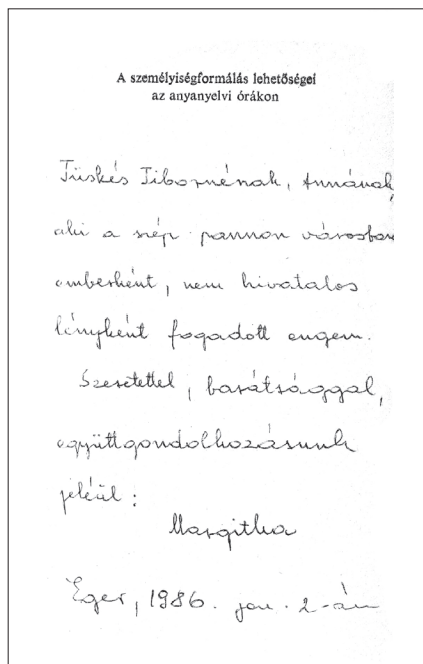 A személyiségformálás lehetőségei
az anyanyelvi órákon
Tüskés Tibornénak, Annának,
aki a szép pannon városban
emberként, nem hivatalos
lényként fogadott engem.
Szeretettel, barátsággal,
együttgondolkozásunk
jeléül:
Margitka
Eger, 1986. jan. 2-án